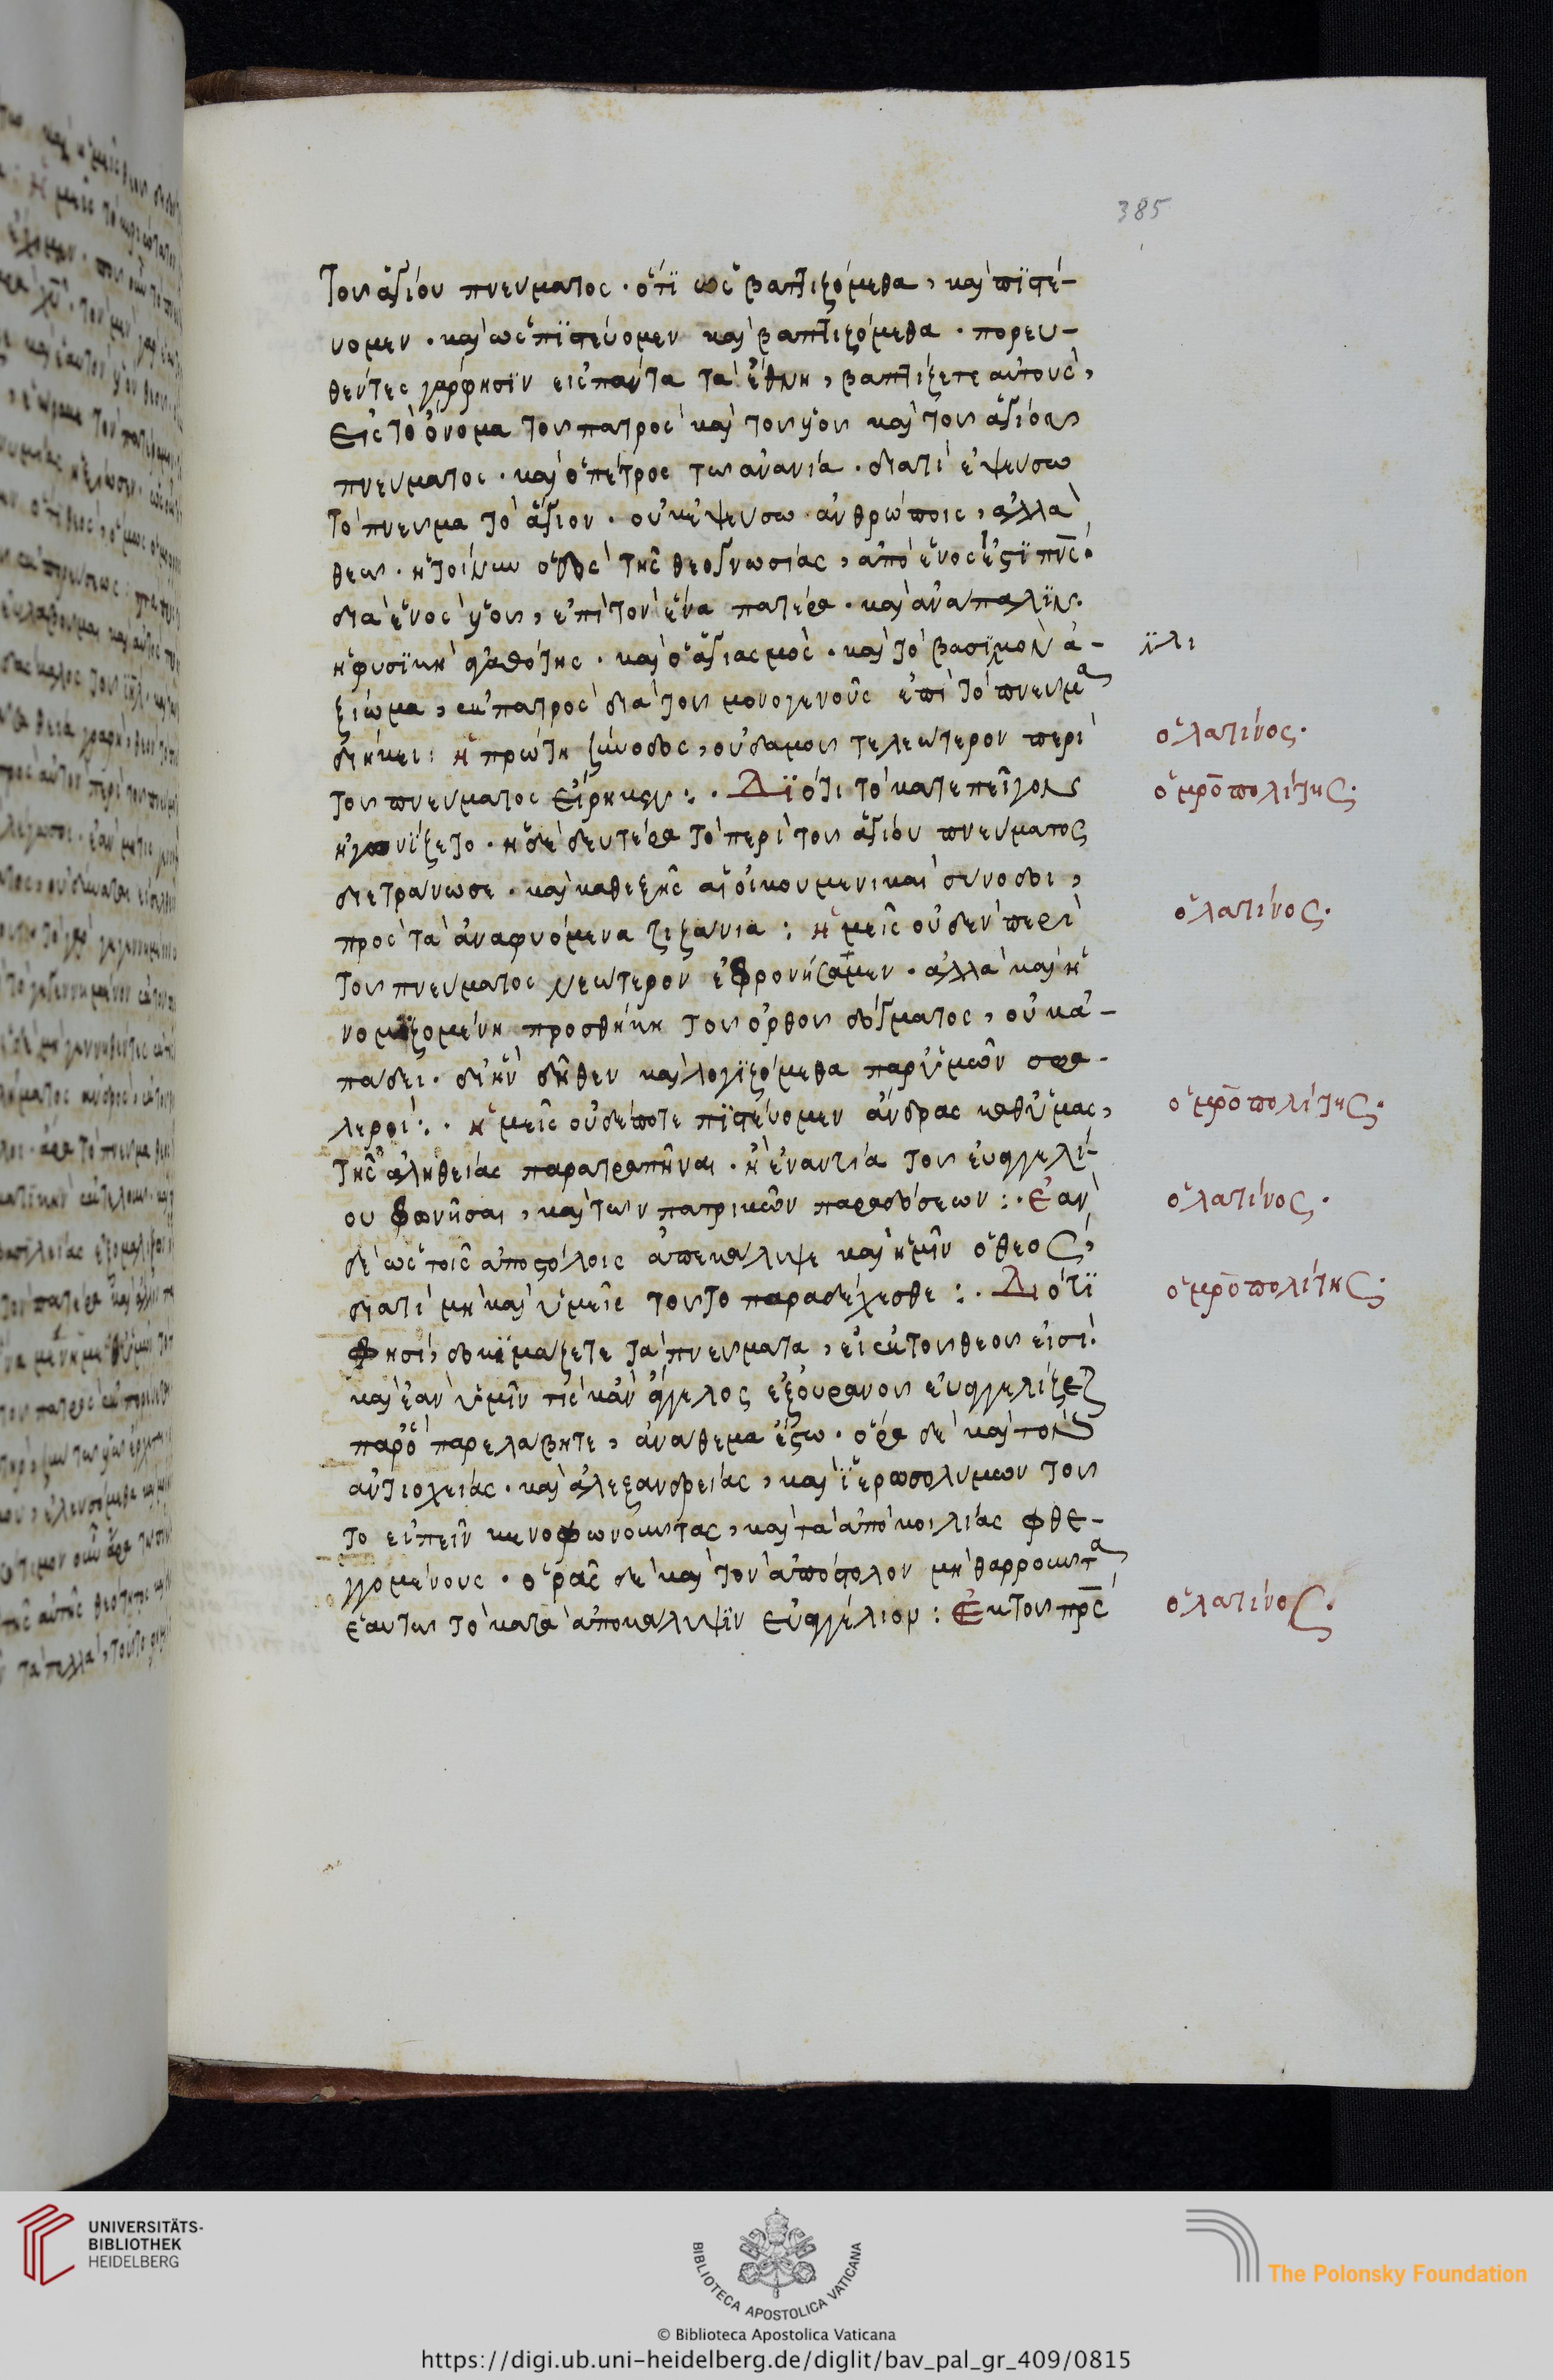 385
τοῦ ἁγίου πνεύματος · ὅτι ὡς βαπτιζόμεθα, καὶ πιστεύ-
νομεν · καὶ ὡς πιστεύομεν καὶ βαπτιζόμεθα · πορευ-
θέντες γάρ φησιν εἰς πάντα τὰ ἔθνη, βαπτίζετε αὐτοὺς,
εἰς τὸ ὄνομα τοῦ πατρὸς καὶ τοῦ υἱοῦ καὶ τοῦ ἁγίου
πνεύματος · καὶ ὁ πέτρος τῶ ἀνανία · διατί ἐψεύσω
τὸ πνεῦμα τὸ ἅγιον · οὐκ ἐψεύσω ἀνθρώποις, ἀλλὰ
θεῶ · ἡ τοίνυν ὁδὸς τῆς θεογνωσίας, ἀπὸ ἑνός ἐστι πν̅ς·
διὰ ἑνὸς υἱοῦ, ἐπὶ τὸν ἕνα πατέρα · καὶ ἀνάπαλιν.
ἡ φυσικὴ ἀγαθότης · καὶ ὁ ἁγιασμὸς · καὶ τὸ βασιλικὸν ἀ-
ξίωμα, ἐκ πατρὸς διὰ τοῦ μονογενοῦς ἐπὶ τὸ πνεῦμα
διήκει: ἡ πρώτη σύνοδος, οὐδαμοῦ τελεώτερον περὶ
ὁ λατίνος.
τοῦ πνεύματος εἴρηκεν:. Διότι τὸ κατεπεῖγον
ὁ μρο̅πολίτης.
ἠγωνίζετο · ἡ δὲ δευτέρα τὸ περὶ τοῦ ἁγίου πνεύματος
διετράνωσε · καὶ καθεξῆς αἱ οἰκουμενικαὶ σύνοδοι,
πρὸς τὰ ἀναφυόμενα ζιζάνια: ἡμεῖς οὐδὲν περὶ
ὁ λατίνος.
τοῦ πνεύματος νεώτερον ἐφρονήσαμεν · ἀλλὰ καὶ ἡ
νομιζομένη προσθήκη τοῦ ὀρθοῦ δόγματος, οὐκ ἀ-
πάδει · δι' ἣν δῆθεν καὶ λογιζόμεθα παρ' ὑμῶν σφα-
λεροί:. ἡμεῖς οὐδέποτε πιστεύομεν ἄνδρας καθ' ὑμᾶς,
ὁ μρο̅πολίτης.
τῆς ἀληθείας παρατραπῆναι · ἢ ἐναντία τοῦ εὐαγγελί-
ου φωνῆσαι, καὶ τῶν πατρικῶν παραδόσεων:. Ἐὰν
ὁ λατίνος.
δὲ ὡς τοῖς ἀποστόλοις ἀπεκάλυψε καὶ ἡμῖν ὁ θεὸς,
διατί μὴ καὶ ὑμεῖς τοῦτο παραδέχεσθε:. Διότι
ὁ μρο̅πολίτης.
φησὶ, δοκιμάζετε τὰ πνεύματα, εἰ ἐκ τοῦ θεοῦ εἰσί.
καὶ ἐὰν ὑμῖν τίς κἂν ἄγγελος ἐξ οὐρανοῦ εὐαγγελίζεται
παρ' ὃ παρελάβητε, ἀνάθεμα ἔστω · ὅρα δὲ καὶ τὸν
ἀντιοχείας · καὶ ἀλεξανδρείας, καὶ ἱεροσολύμων τοῦ
το εἰπεῖν κενοφωνοῦντας, καὶ τὰ ἀπὸ κοιλίας φθε-
γγομένους · ὁρᾶς δὲ καὶ τὸν ἀπόστολον μὴ θαρροῦντα
ἑαυτῶ τὸ κατὰ ἀποκάλυψιν εὐαγγέλιον: Ἐκ τοῦ πρ̅ς
ὁ λατίνος.
UNIVERSITÄTS-
BIBLIOTHEK
HEIDELBERG
BIBLIOTECA APOSTOLICA VATICANA
The Polonsky Foundation
© Biblioteca Apostolica Vaticana
https://digi.ub.uni-heidelberg.de/diglit/bav_pal_gr_409/0815